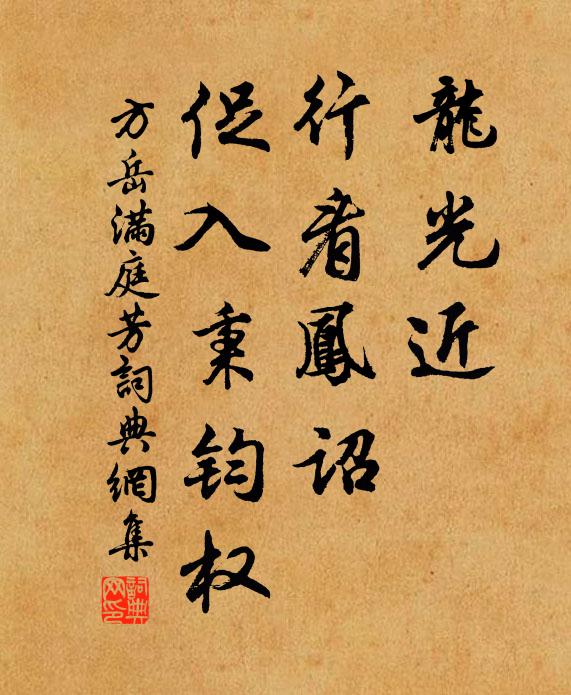 龍光近
行看鳳詔
促入秉鈞权
方岳滿庭芳詞典網集
詞典网印